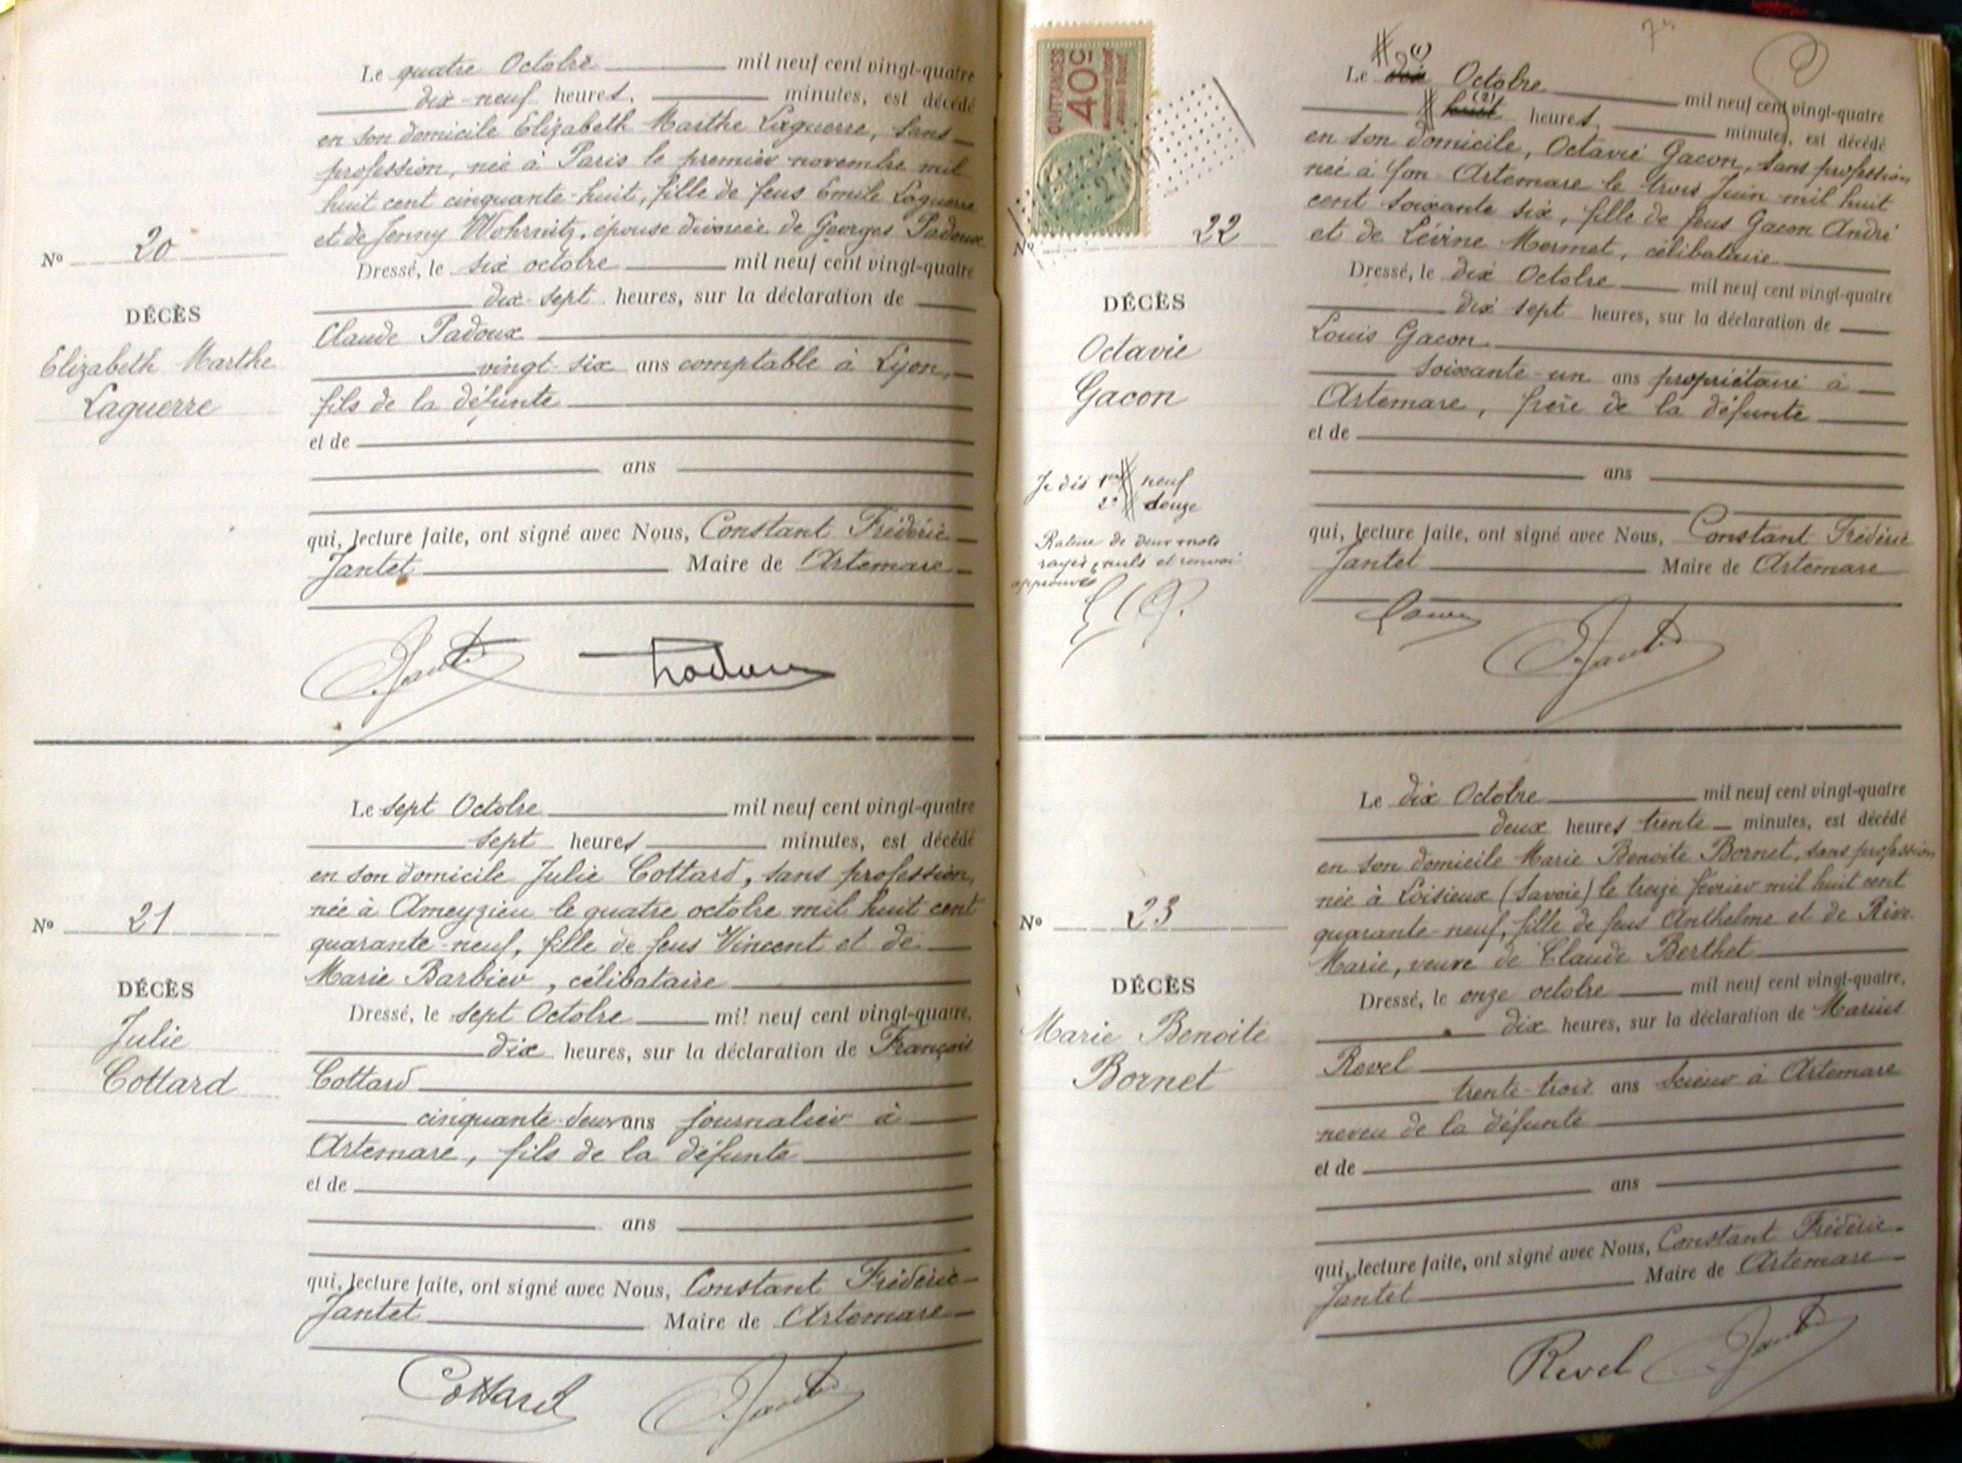 Le quatre Octobre mil neuf cent vingt-quatre
dix-neuf heures, minutes, est décédé
en son domicile Elizabeth Marthe Laguerre, sans
profession, née à Paris le premier novembre mil
huit cent cinquante-huit, fille de feus Emile Laguerre
et de Jenny Wohrnitz, épouse divorcée de Georges Padoux
No 20
Dressé, le six octobre mil neuf cent vingt-quatre
dix-sept heures, sur la déclaration de
DÉCÈS
Claude Padoux
Elizabeth Marthe
Laguerre
vingt-six ans comptable à Lyon,
fils de la défunte
et de
ans
qui, lecture faite, ont signé avec Nous, Constant Frédéric
Jantet Maire de Artemare
Jantet Padoux
Le sept Octobre mil neuf cent vingt-quatre
sept heures minutes, est décédé
en son domicile Julie Cottard, sans profession,
née à Ameyzieu le quatre octobre mil huit cent
No 21
quarante-neuf, fille de feus Vincent et de
Marie Barbier, célibataire
DÉCÈS
Julie
Cottard
Dressé, le sept Octobre mil neuf cent vingt-quatre,
dix heures, sur la déclaration de François
Cottard
cinquante-deux ans journalier à
Artemare, fils de la défunte
et de
ans
qui, lecture faite, ont signé avec Nous, Constant Frédéric
Jantet Maire de Artemare
Cottard Jantet
QUITTANCES
40c
Le dix (1) Octobre mil neuf cent vingt-quatre
huit (2) heures minutes, est décédé
en son domicile, Octavie Gacon, sans profession
née à Yon-Artemare le trois Juin mil huit
cent soixante six, fille de feus Gacon André
et de Lévine Mermet, célibataire
No 22
Dressé, le dix Octobre mil neuf cent vingt-quatre
dix sept heures, sur la déclaration de
DÉCÈS
Octavie
Gacon
Louis Gacon
soixante-un ans propriétaire à
Artemare, frère de la défunte
et de
ans
Je dis 1er neuf
2e douze
Rature de deux mots
rayés nuls et renvoi
approuvés
qui, lecture faite, ont signé avec Nous, Constant Frédéric
Jantet Maire de Artemare
Gacon Jantet
Le dix Octobre mil neuf cent vingt-quatre
deux heures trente minutes, est décédé
en son domicile Marie Benoite Bornet, sans profession
née à Loisieux (Savoie) le treize février mil huit cent
No 23
quarante-neuf, fille de feus Anthelme et de Rive
Marie, veuve de Claude Berthet
DÉCÈS
Marie Benoite
Bornet
Dressé, le onze octobre mil neuf cent vingt-quatre,
dix heures, sur la déclaration de Marius
Revel
trente-trois ans scieur à Artemare
neveu de la défunte
et de
ans
qui, lecture faite, ont signé avec Nous, Constant Frédéric
Jantet Maire de Artemare
Revel Jantet